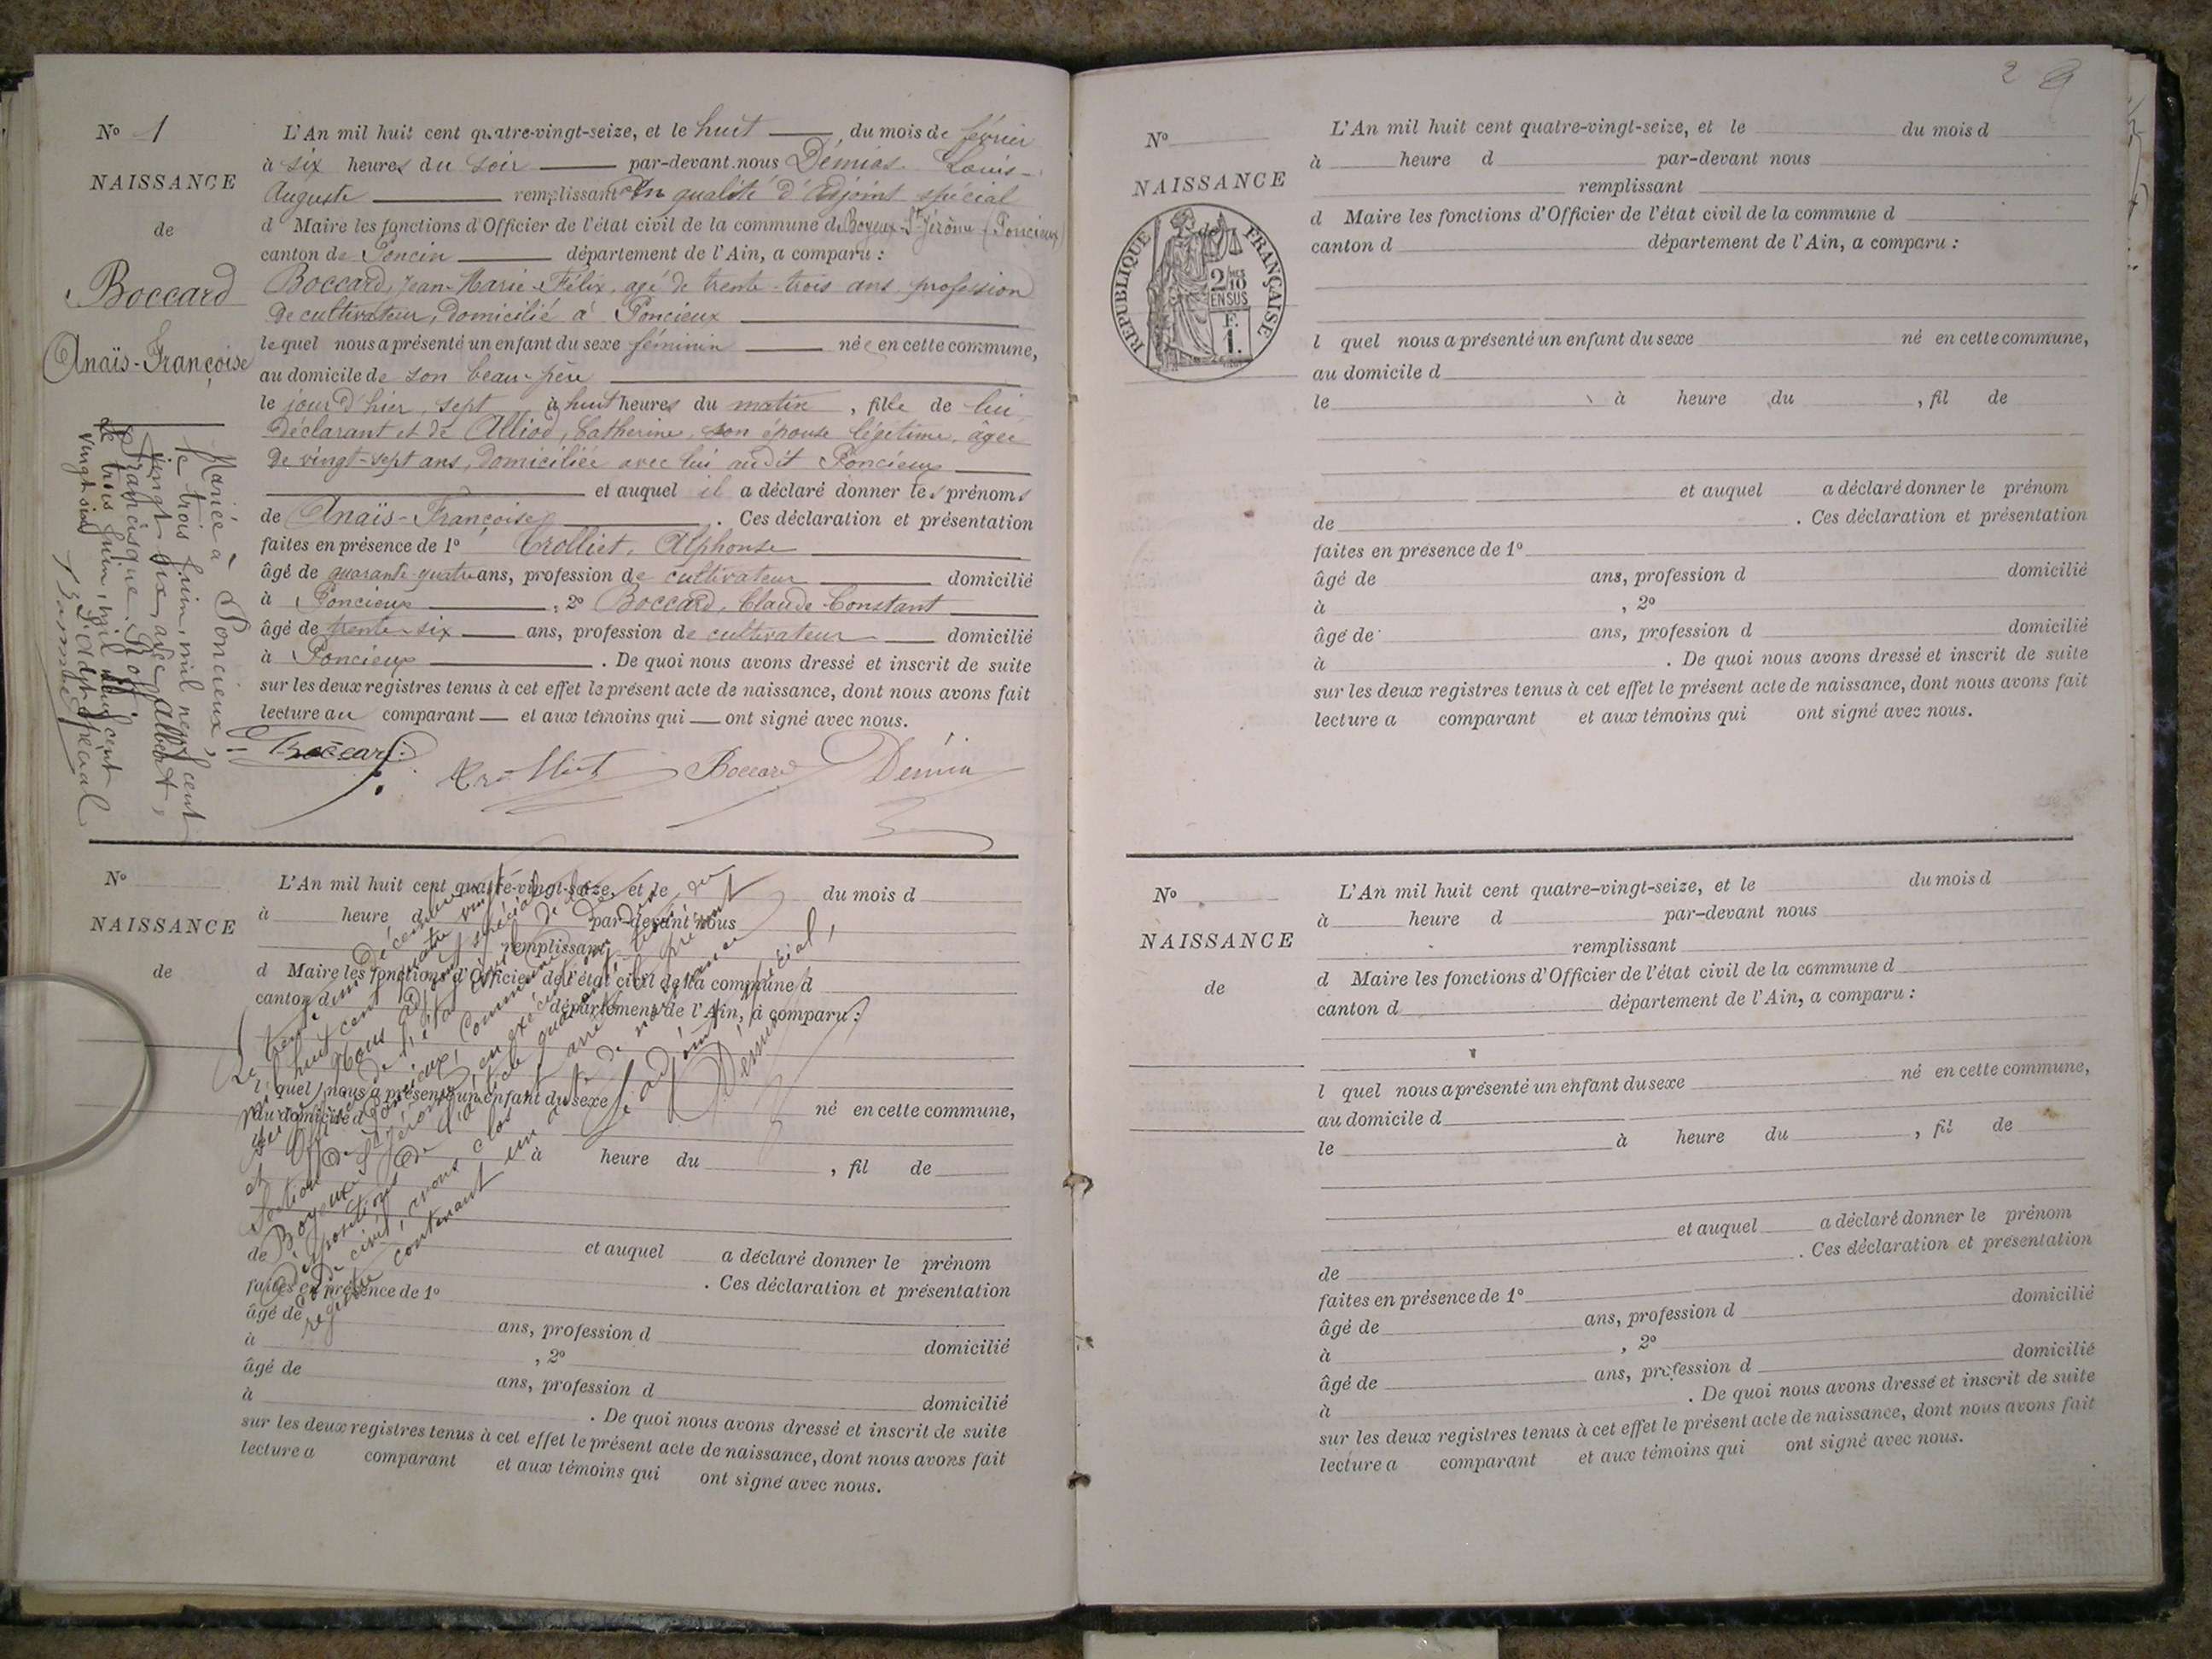 Nº 1
NAISSANCE
de
Boccard
Anaïs-Françoise
Mariée à Poncieux,
le trois juin, mil neuf cent
vingt six, avec Albert,
Francisque
le trois juin, mil neuf cent
vingt six
L'adjt spécial
L'An mil huit cent quatre-vingt-seize, et le huit du mois de février
à six heures du soir par-devant nous Démias Louis-
Auguste remplissant en qualité d'adjoint spécial
d Maire les fonctions d'Officier de l'état civil de la commune de Boyeux-St Jérôme (Poncieux)
canton de Poncin département de l'Ain, a comparu :
Boccard, Jean-Marie-Félix, agé de trente-trois ans, profession
de cultivateur, domicilié à Poncieux
lequel nous a présenté un enfant du sexe féminin née en cette commune,
au domicile de son beau-père
le jour d'hier, sept à huit heures du matin, fille de lui
déclarant et de Alliod, Catherine, son épouse légitime, âgée
de vingt-sept ans, domiciliée avec lui audit Poncieux
et auquel il a déclaré donner les prénoms
de Anaïs-Françoise. Ces déclaration et présentation
faites en présence de 1º Trolliet, Alphonse
âgé de quarante-quatre ans, profession de cultivateur domicilié
à Poncieux, 2º Boccard, Claude-Constant
âgé de trente-six ans, profession de cultivateur domicilié
à Poncieux. De quoi nous avons dressé et inscrit de suite
sur les deux registres tenus à cet effet le présent acte de naissance, dont nous avons fait
lecture au comparant et aux témoins qui ont signé avec nous.
Boccard Trolliet Boccard Démias
Nº
NAISSANCE
de
L'An mil huit cent quatre-vingt-seize, et le du mois d
à heure d par-devant nous
remplissant
d Maire les fonctions d'Officier de l'état civil de la commune d
canton d département de l'Ain, a comparu :
l quel nous a présenté un enfant du sexe né en cette commune,
au domicile d
à heure du , fil de
et auquel a déclaré donner le prénom
de . Ces déclaration et présentation
faites en présence de 1º
âgé de ans, profession d domicilié
à , 2º
âgé de ans, profession d domicilié
à . De quoi nous avons dressé et inscrit de suite
sur les deux registres tenus à cet effet le présent acte de naissance, dont nous avons fait
lecture a comparant et aux témoins qui ont signé avec nous.
Le trente décembre
mil huit cent quatre vingt
Nous adjoint spécial
et Officier de l'état civil de la
Section de Poncieux, Commune de
Boyeux-St Jérôme, en exécution des
dispositions de l'article quarante trois du
Code civil, avons clos et arrêté le présent
registre contenant un acte de naissance
L'adjoint spécial,
Démias
2
Nº
NAISSANCE
de
RÉPUBLIQUE FRANÇAISE
2/10 EN SUS
F.
1.
L'An mil huit cent quatre-vingt-seize, et le du mois d
à heure d par-devant nous
remplissant
d Maire les fonctions d'Officier de l'état civil de la commune d
canton d département de l'Ain, a comparu :
l quel nous a présenté un enfant du sexe né en cette commune,
au domicile d
le à heure du , fil de
et auquel a déclaré donner le prénom
de . Ces déclaration et présentation
faites en présence de 1º
âgé de ans, profession d domicilié
à , 2º
âgé de ans, profession d domicilié
à . De quoi nous avons dressé et inscrit de suite
sur les deux registres tenus à cet effet le présent acte de naissance, dont nous avons fait
lecture a comparant et aux témoins qui ont signé avec nous.
Nº
NAISSANCE
de
L'An mil huit cent quatre-vingt-seize, et le du mois d
à heure d par-devant nous
remplissant
d Maire les fonctions d'Officier de l'état civil de la commune d
canton d département de l'Ain, a comparu :
l quel nous a présenté un enfant du sexe né en cette commune,
au domicile d
le à heure du , fil de
et auquel a déclaré donner le prénom
de . Ces déclaration et présentation
faites en présence de 1º
âgé de ans, profession d domicilié
à , 2º
âgé de ans, profession d domicilié
à . De quoi nous avons dressé et inscrit de suite
sur les deux registres tenus à cet effet le présent acte de naissance, dont nous avons fait
lecture a comparant et aux témoins qui ont signé avec nous.